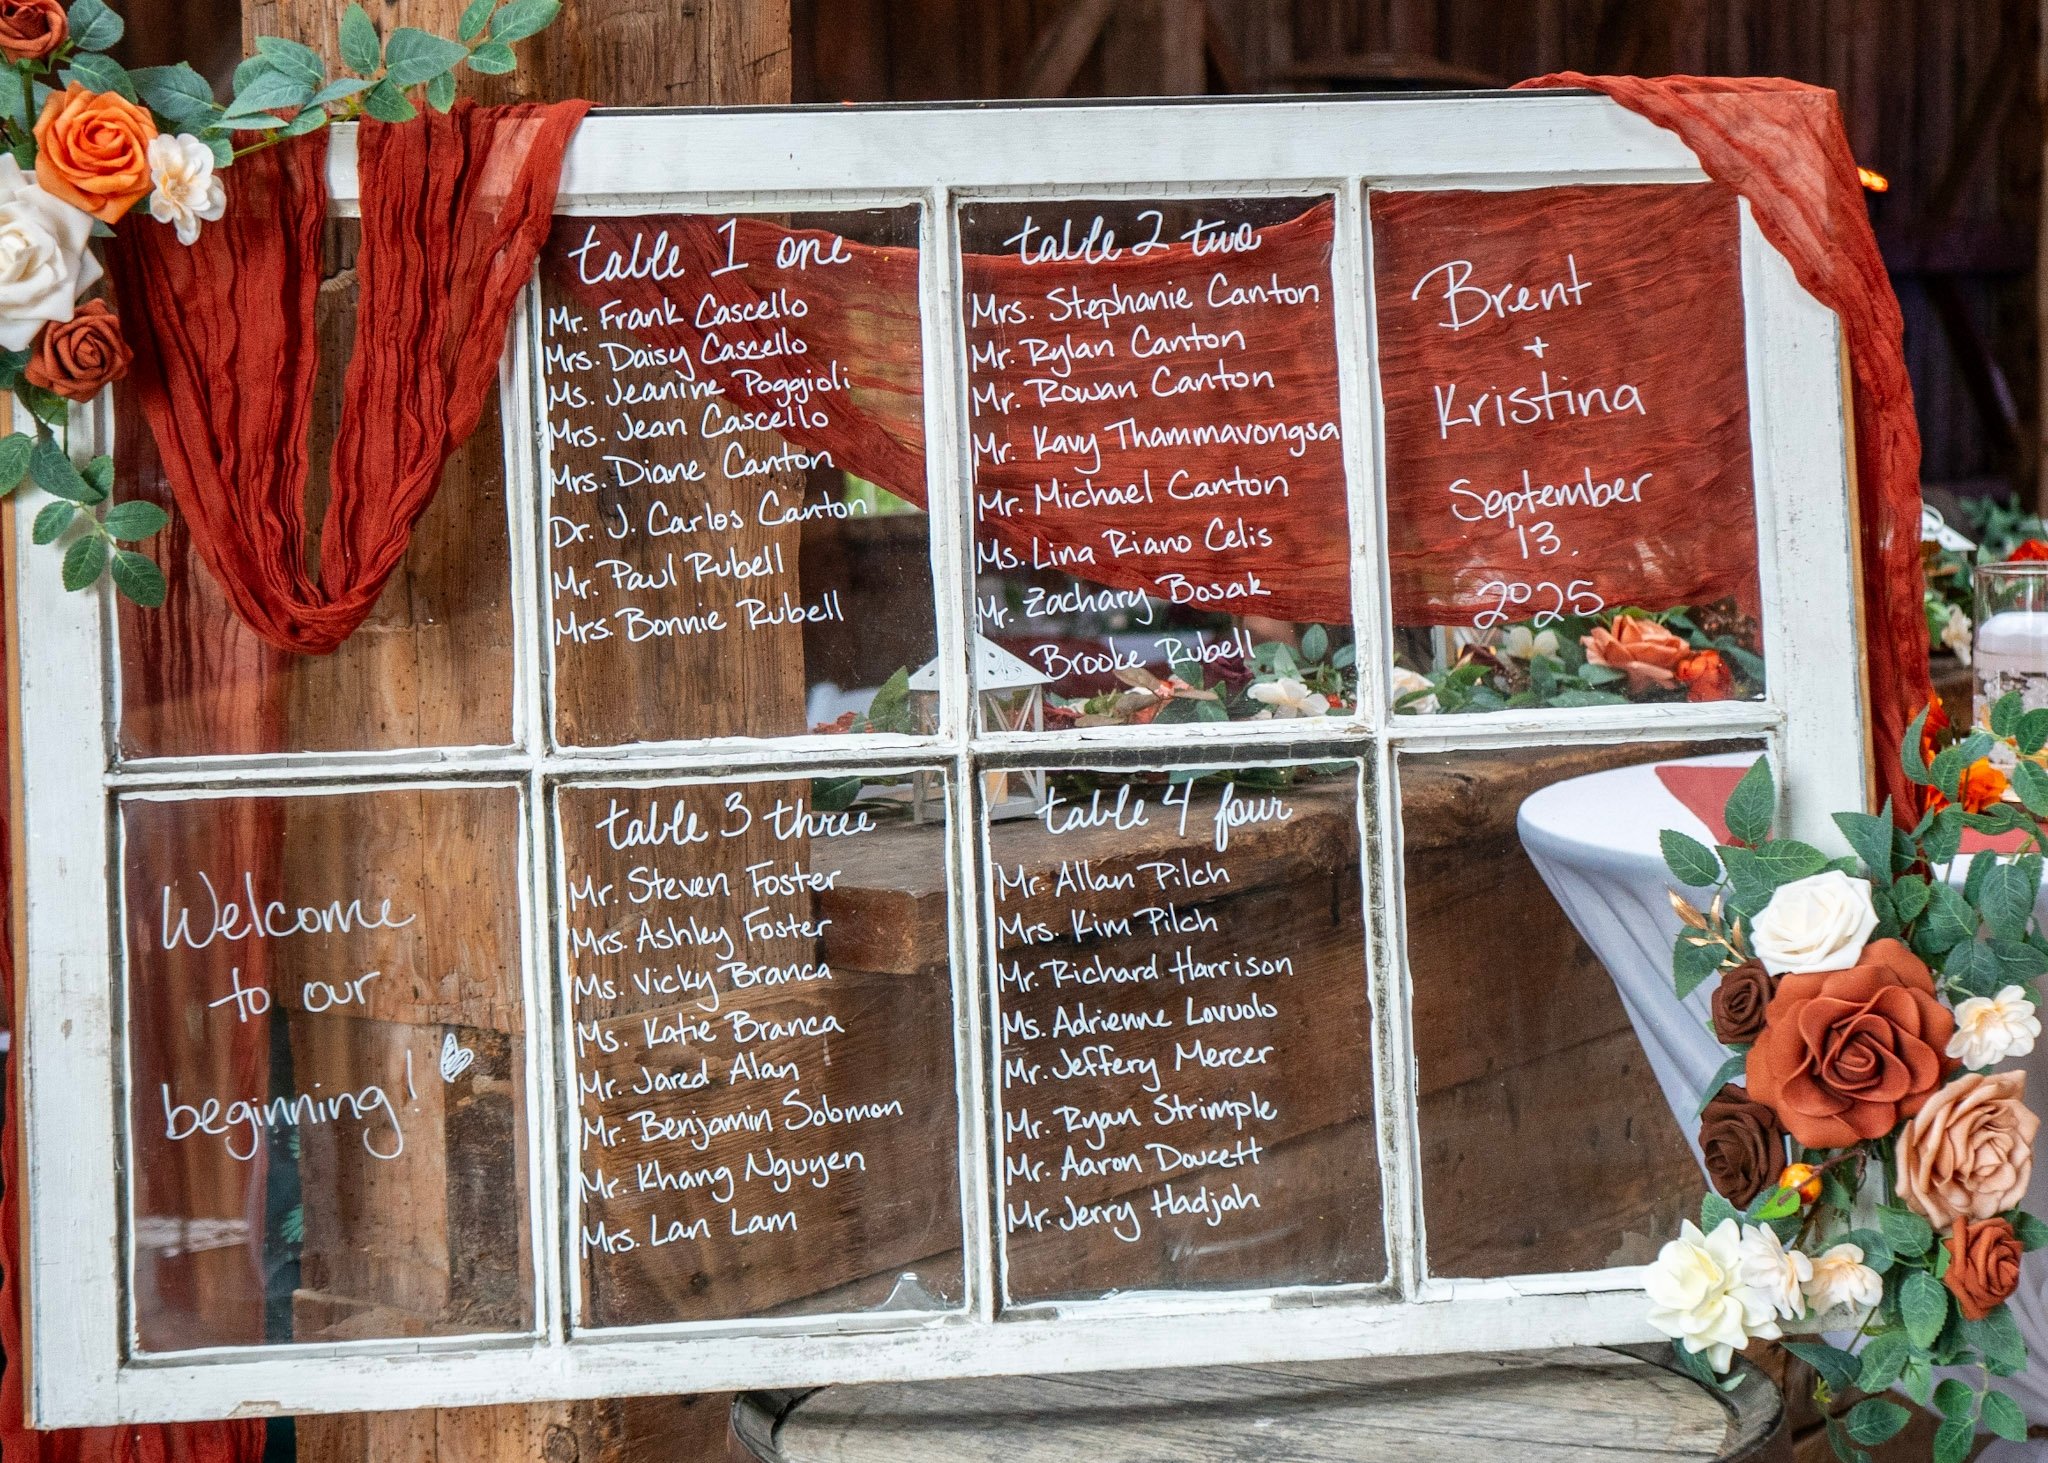 table 1 one
Mr. Frank Cascello
Mrs. Daisy Cascello
Ms. Jeanine Poggioli
Mrs. Jean Cascello
Mrs. Diane Canton
Dr. J. Carlos Canton
Mr. Paul Rubell
Mrs. Bonnie Rubell
table 2 two
Mrs. Stephanie Canton
Mr. Rylan Canton
Mr. Rowan Canton
Mr. Kavy Thammavongsa
Mr. Michael Canton
Ms. Lina Riano Celis
Mr. Zachary Bosak
Brooke Rubell
Brent
+
Kristina
September
13.
2025
Welcome
to our
beginning!
table 3 three
Mr. Steven Foster
Mrs. Ashley Foster
Ms. Vicky Branca
Ms. Katie Branca
Mr. Jared Alan
Mr. Benjamin Solomon
Mr. Khang Nguyen
Mrs. Lan Lam
table 4 four
Mr. Allan Pilch
Mrs. Kim Pilch
Mr. Richard Harrison
Ms. Adrienne Lovuolo
Mr. Jeffery Mercer
Mr. Ryan Strimple
Mr. Aaron Doucett
Mr. Jerry Hadjah